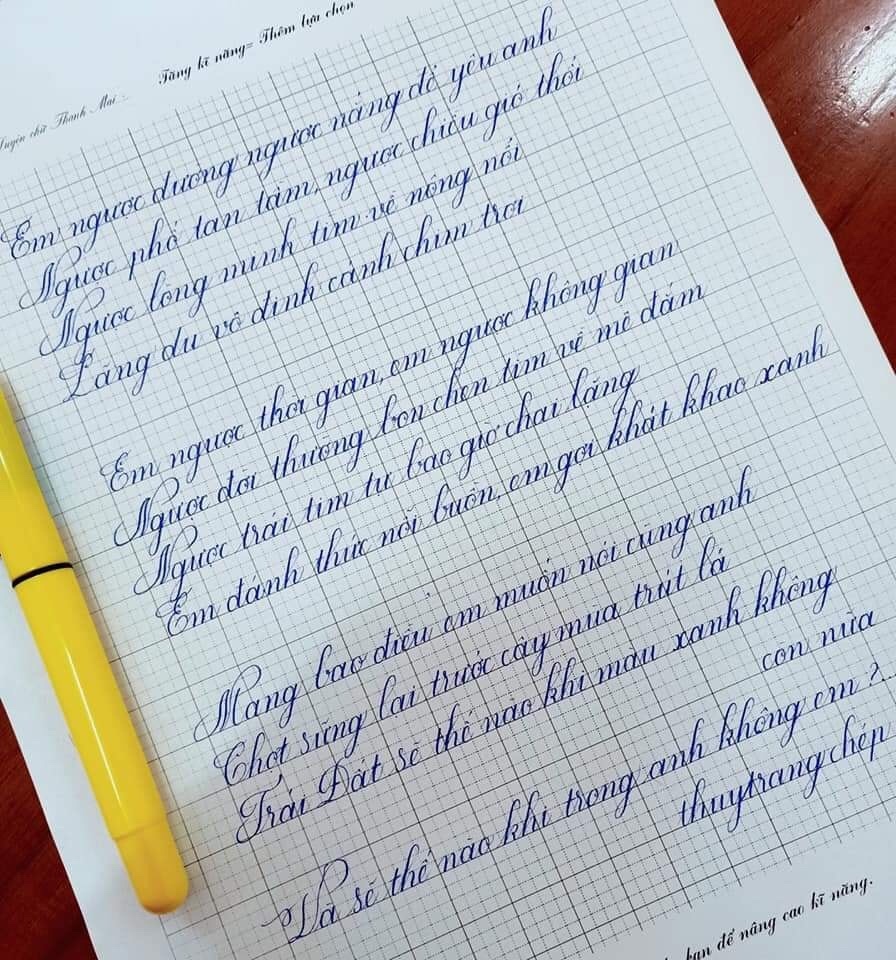 Tăng kĩ năng= Thêm lựa chọn
Luyện chữ Thanh Mai
Em ngược đường ngược nắng để yêu anh
Ngược phố tan tầm, ngược chiều gió thổi
Ngược lòng mình tìm về nông nổi
Lãng du vô định cánh chim trời
Em ngược thời gian, em ngược không gian
Ngược đời thường bon chen tìm về mê đắm
Ngược trái tim tự bao giờ chai lặng
Em đánh thức nỗi buồn, em gợi khát khao xanh
Mang bao điều em muốn nói cùng anh
Chợt sững lại trước cây mùa trút lá
Trái Đất sẽ thế nào khi màu xanh không
còn nữa
Và sẽ thế nào khi trong anh không em ?
thuytrang chép
bạn để nâng cao kĩ năng.